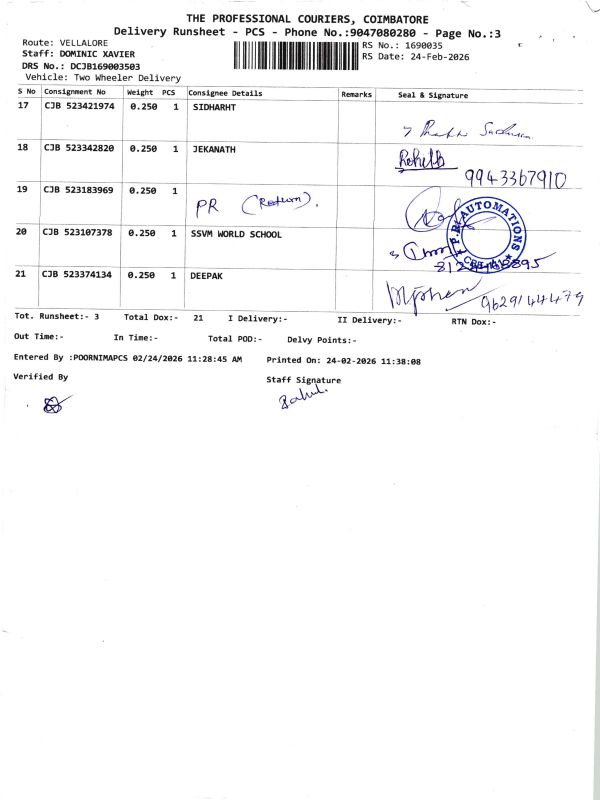 THE PROFESSIONAL COURIERS, COIMBATORE
Delivery Runsheet - PCS - Phone No.:9047080280 - Page No.:3
Route: VELLALORE
Staff: DOMINIC XAVIER
DRS No.: DCJB169003503
Vehicle: Two Wheeler Delivery
RS No.: 1690035
RS Date: 24-Feb-2026
S No Consignment No Weight PCS Consignee Details Remarks Seal & Signature
17 CJB 523421974 0.250 1 SIDHARHT
18 CJB 523342820 0.250 1 JEKANATH
9943367910
19 CJB 523183969 0.250 1
PR (Return).
AUTOMATIONS
20 CJB 523107378 0.250 1 SSVM WORLD SCHOOL
21 CJB 523374134 0.250 1 DEEPAK
9629144479
Tot. Runsheet:- 3 Total Dox:- 21 I Delivery:- II Delivery:- RTN Dox:-
Out Time:- In Time:- Total POD:- Delvy Points:-
Entered By :POORNIMAPCS 02/24/2026 11:28:45 AM Printed On: 24-02-2026 11:38:08
Verified By Staff Signature